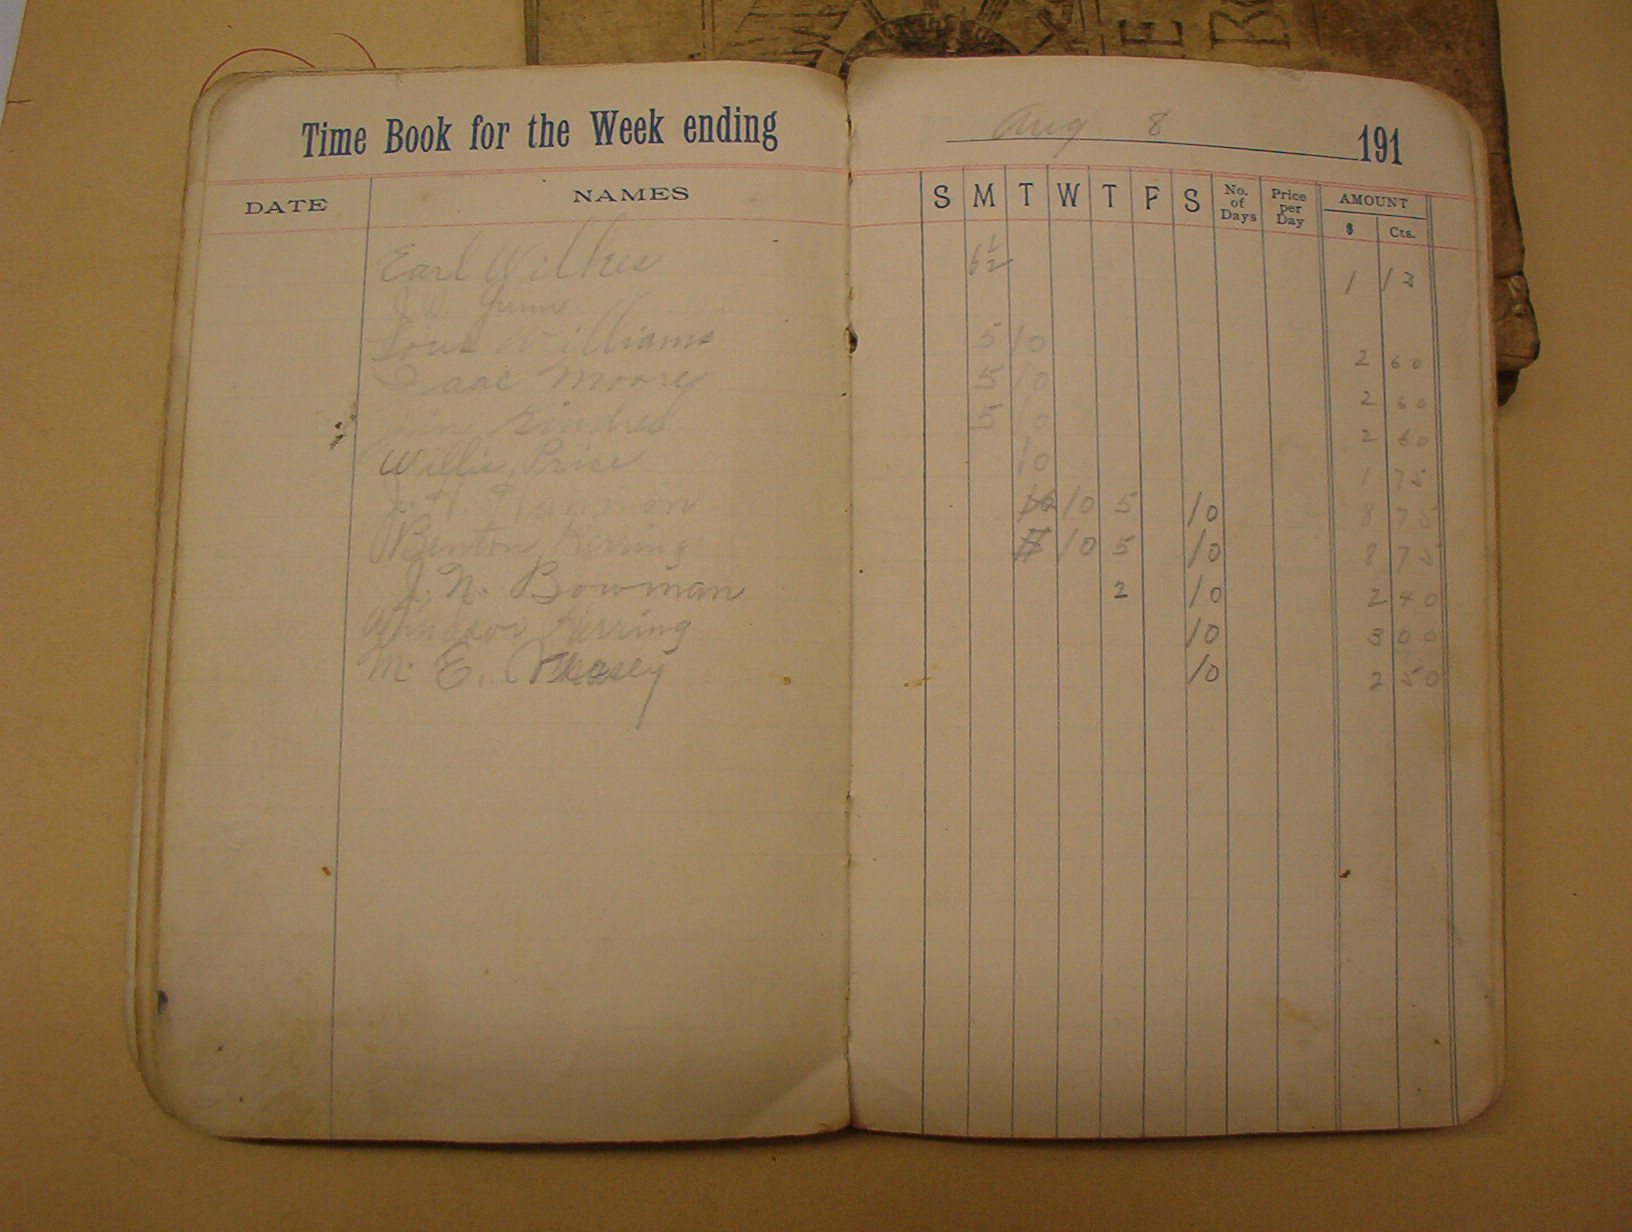 E B
Time Book for the Week ending Aug 8 191
DATE NAMES S M T W T F S No. of Days Price per Day AMOUNT $ Cts.
Earl Wilkes 6 1/2 1 13
J. W. Gunn
Williams 5 10 2 60
Isaac Moore 5 10 2 60
5 10 2 60
Willie Price 10 1 75
J. H. Hammon 10 5 10 8 75
Benton Herring 10 5 10 8 75
J. N. Bowman 2 10 2 40
Windsor Herring 10 3 00
M. E. 10 2 50